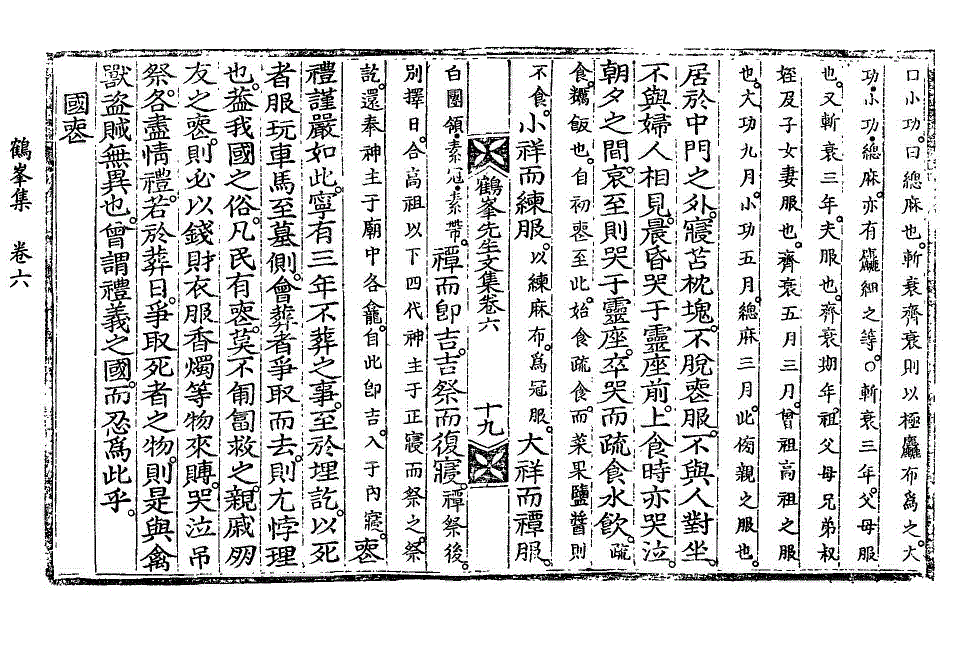 口小功。曰緦麻也。斬衰齊衰則以極麤布爲之。大
功・小功・緦麻。亦有麤細之等。○斬衰三年。父母服
也。又斬衰三年。夫服也。齊衰期年。祖父母兄弟叔
姪及子女妻服也。齊衰五月三月。曾祖高祖之服
也。大功九月。小功五月。緦麻三月。此傍親之服也。
居於中門之外。寢苫枕塊。不脫喪服。不與人對坐。
不與婦人相見。晨昏哭于靈座前。上食時亦哭泣。
朝夕之間。哀至則哭于靈座。卒哭而疏食水飮。疏
食。糲飯也。自初喪至此。始食疏食。而菜果鹽醬則
不食。小祥而練服。以練麻布。爲冠服。大祥而禫服。
鶴峯先生文集卷六 十九
白團領・素冠・素帶。禫而卽吉。吉祭而復寢。禫祭後。
別擇日。合高祖以下四代神主于正寢而祭之。祭
訖。還奉神主于廟中各龕。自此卽吉。入于內寢。喪
禮謹嚴如此。寧有三年不葬之事。至於埋訖。以死
者服玩車馬至墓側。會葬者爭取而去。則尤悖理
也。蓋我國之俗。凡民有喪。莫不匍匐救之。親戚朋
友之喪。則必以錢財衣服香燭等物來賻。哭泣弔
祭。各盡情禮。若於葬日。爭取死者之物。則是與禽
獸盜賊無異也。曾謂禮義之國。而忍爲此乎。
國喪
鶴峯集 卷六